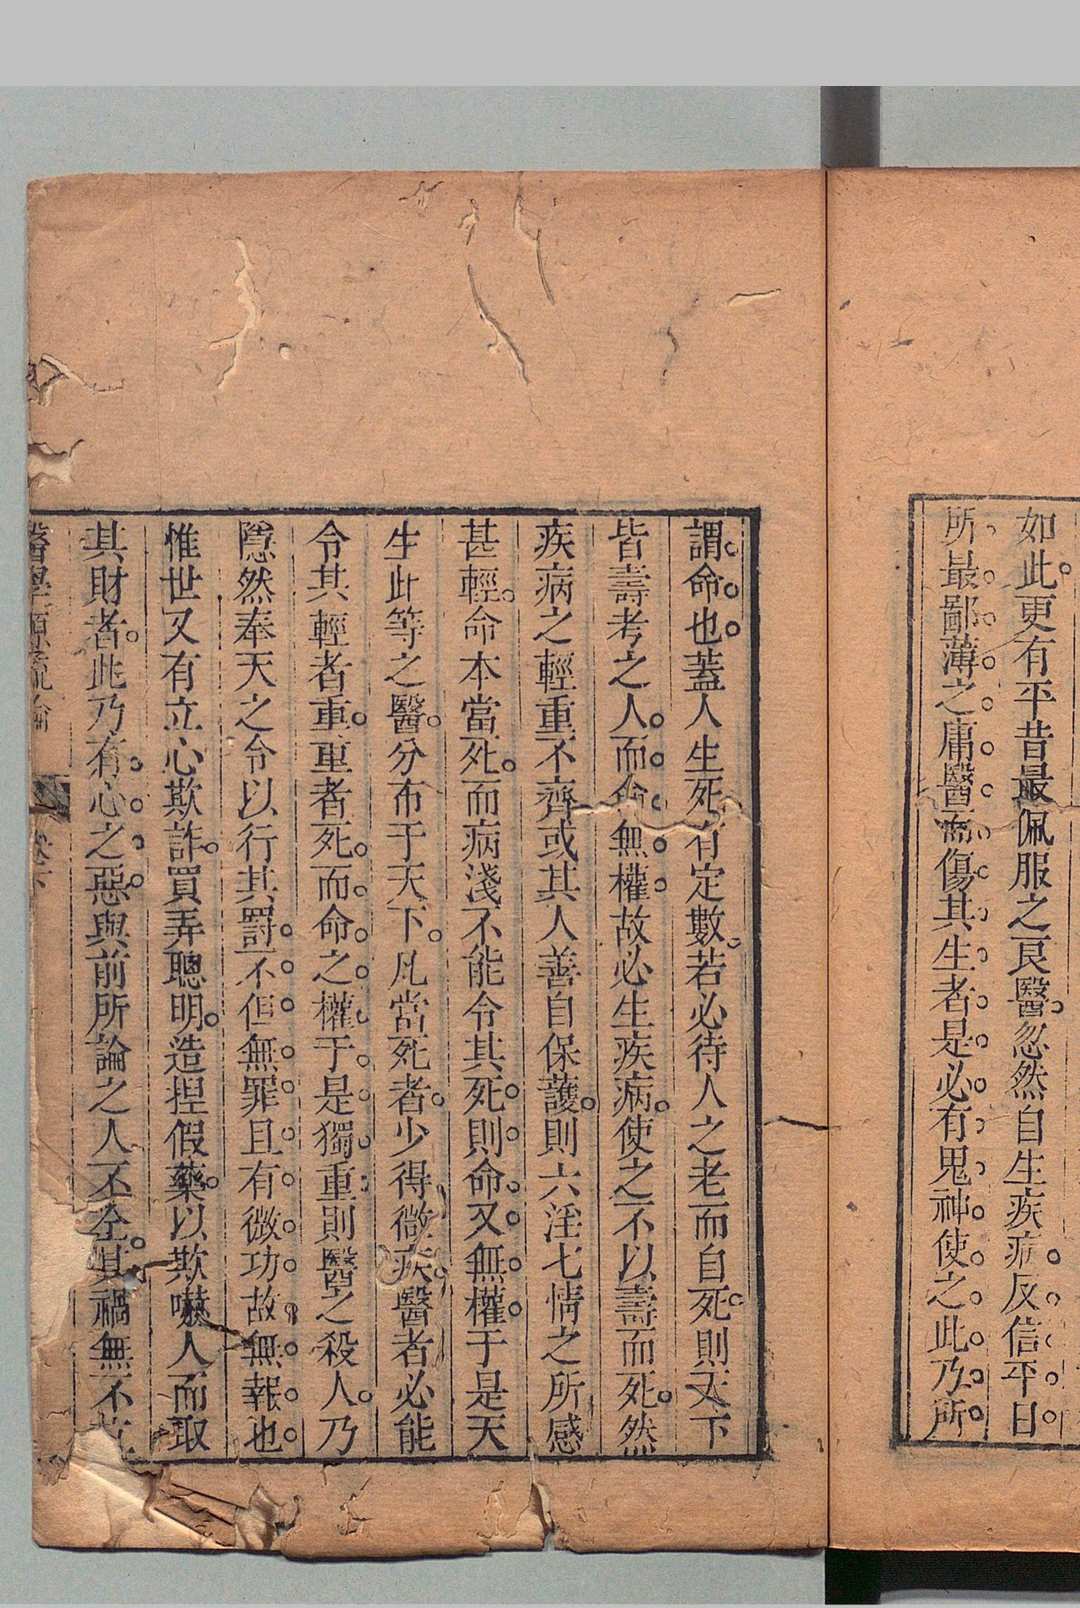 如此更有平昔最佩服之良醫忽然自生疾病反信平日
所最鄙薄之庸醫而傷其生者是必有鬼神使之此乃所
謂命也蓋人生死有定數若必待人之老而自死則天下
皆壽考之人而命無權故必生疾病使之不以壽而死然
疾病之輕重不齊或其人善自保護則六淫七情之所感
甚輕命本當死而病淺不能令其死則命又無權于是天
生此等之醫分布于天下凡當死者少得微疾醫者必能
令其輕者重重者死而命之權于是獨重則醫之殺人乃
隱然奉天之令以行其罰不但無罪且有微功故無報也
惟世又有立心欺詐買弄聰明造捏假藥以欺嚇人而取
其財者此乃有心之惡與前所論之人不仝其禍無不立
醫學源流論 卷下